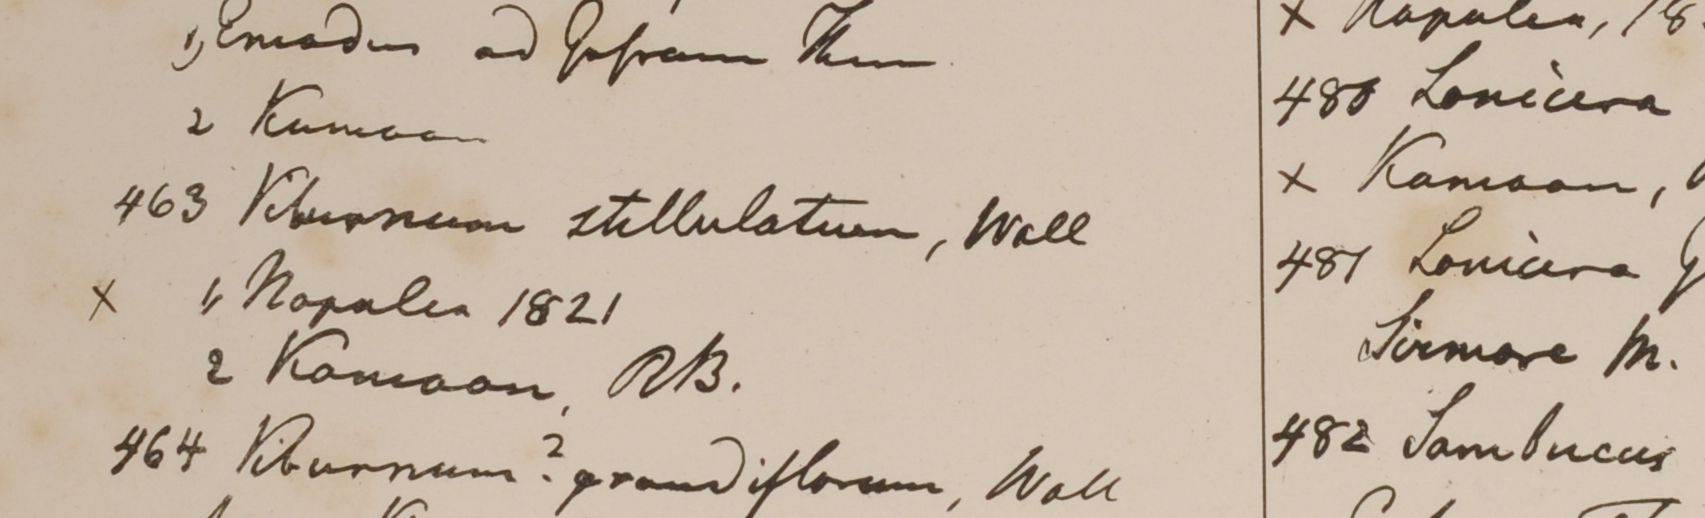 1, Emodus ad Gossam Than
2 Kumaon
463 Viburnum stellulatum, Wall
x 1, Napalea 1821
2 Kamaon, RB.
464 Viburnum? grandiflorum, Wall
x Napalea, 18
480 Lonicera
x Kamaon,
481 Lonicera
Sirmore M.
482 Sambucus